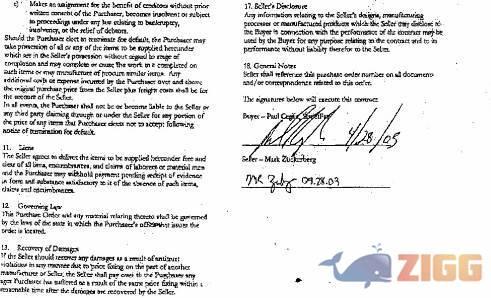 c) Makes an assignment for the benefit of creditors without prior
written consent of the Purchaser, becomes involved or subject
to proceedings under any law relating to bankruptcy,
insolvency, or the relief of debtors.
Should the Purchaser elect to terminate for default, the Purchaser may
take possession of all or any of the items to be supplied hereunder
which are in the Seller's possession without regard to stage of
completion and may complete or cause the work to be completed on
such items or may manufacture or procure similar items. Any
additional costs or expense incurred by the Purchaser over and above
the original purchase price from the Seller plus freight costs shall be for
the account of the Seller.
In all events, the Purchaser shall not be or become liable to the Seller or
any third party claiming through or under the Seller for any portion of
the price of any items that Purchaser elects not to accept following
notice of termination for default.
11. Liens
The Seller agrees to deliver the items to be supplied hereunder free and
clear of all liens, encumbrances, and claims of laborers or material men
and the Purchaser may withhold payment pending receipt of evidence
in form and substance satisfactory to it of the absence of such items,
claims and encumbrances.
12. Governing Law
This Purchase Order and any material relating thereto shall be governed
by the laws of the state in which the Purchaser's office that issues the
order is located.
13. Recovery of Damages
If the Seller should recover any damages as a result of antitrust
violations in any manner due to price fixing on the part of another
manufacturer or Seller, the Seller shall pay over to the Purchaser any
Purchaser has suffered as a result of the same price fixing within a
reasonable time after the damages are recovered by the Seller.
17. Seller's Disclosure
Any information relating to the Seller's designs, manufacturing
processes or manufactured products which the Seller may disclose to
the Buyer in connection with the performance of the contract may be
used by the Buyer for any purpose relating to the contract and to its
performance without liability therefor to the Seller.
18. General Notes
Seller shall reference this purchase order number on all documents
and/or correspondence related to this order.
The signatures below will execute this contract.
Buyer – Paul Ceglia, StreetFax
4/28/03
Seller – Mark Zuckerberg
04.28.03
ZIGG